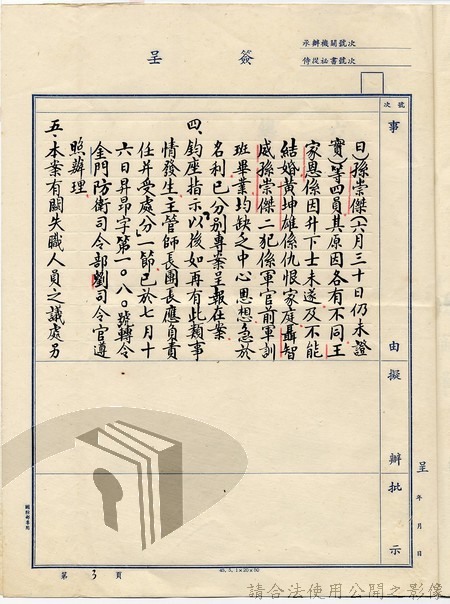 簽呈
示辦機關號次
侍從祕書號次
號次
事由擬辦批示
日)孫崇傑(六月三十日仍未證
實)等四員其原因各有不同王
家恩係因升下士未遂及不能
結婚黃坤雄係仇恨家庭聶智
威孫崇傑二犯係軍官前軍訓
班畢業均缺乏中心思想急於
名利已分别專案呈報在案
四、鈞座指示「以後如再有此類事
情發生主管師長團長應負責
任并受處分」一節已於七月十
六日昇昂字第一〇八〇號轉令
金門防衛司令部劉司令官遵
照辦理
五、本案有關失職人員之議處另
呈 年 月 日
國防部專用
第 3 頁
45. 5. 1×20×50
請合法使用公開之影像